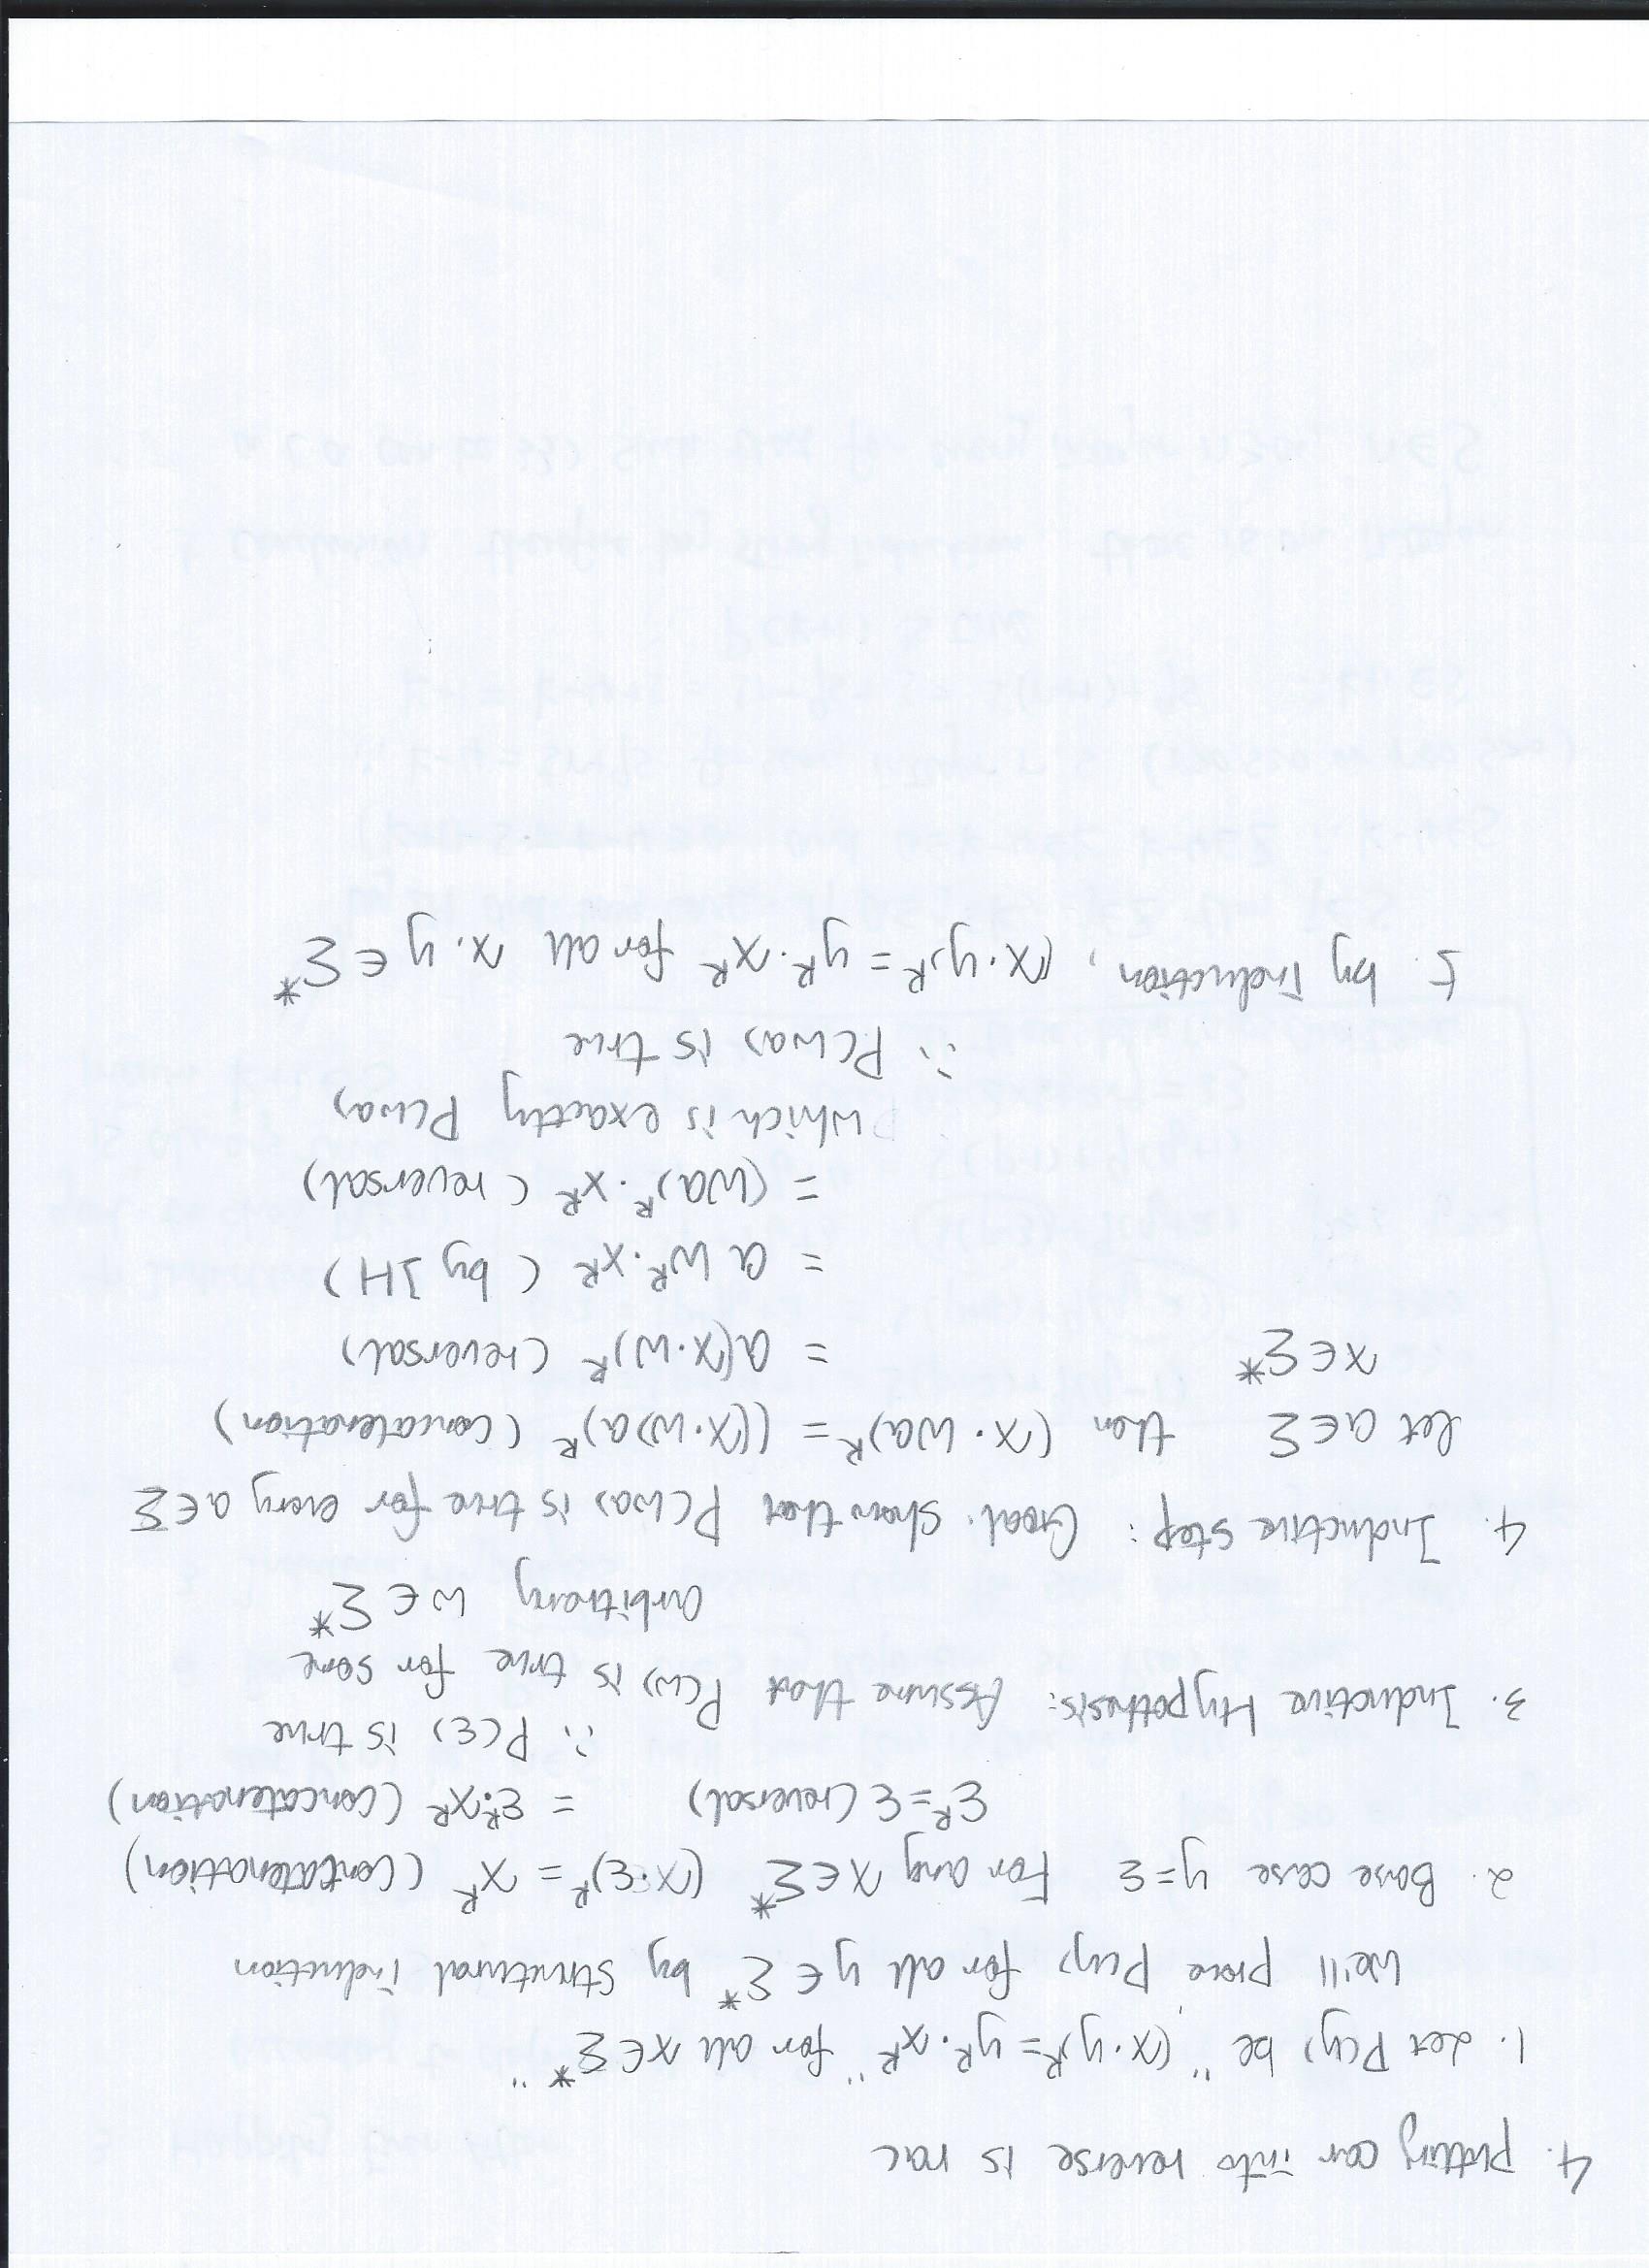 4. putting car into reverse is rac
1. Let P(y) be "(x·y)ᴿ = yᴿ·xᴿ" for all x∈Σ*"
We'll prove P(y) for all y∈Σ* by structural induction
2. Base case y=ε For any x∈Σ* (x·ε)ᴿ = xᴿ (concatenation)
εᴿ=ε (reversal) = εᴿ·xᴿ (concatenation)
∴ P(ε) is true
3. Inductive Hypothesis: Assume that P(w) is true for some
arbitrary w∈Σ*
4. Inductive step: Goal: show that P(wa) is true for every a∈Σ
let a∈Σ then (x·wa)ᴿ = ((x·w)a)ᴿ (concatenation)
x∈Σ* = a(x·w)ᴿ (reversal)
= a wᴿ·xᴿ (by IH)
= (wa)ᴿ·xᴿ (reversal)
which is exactly P(wa)
∴ P(wa) is true
5. by induction, (x·y)ᴿ = yᴿ·xᴿ for all x, y ∈ Σ*